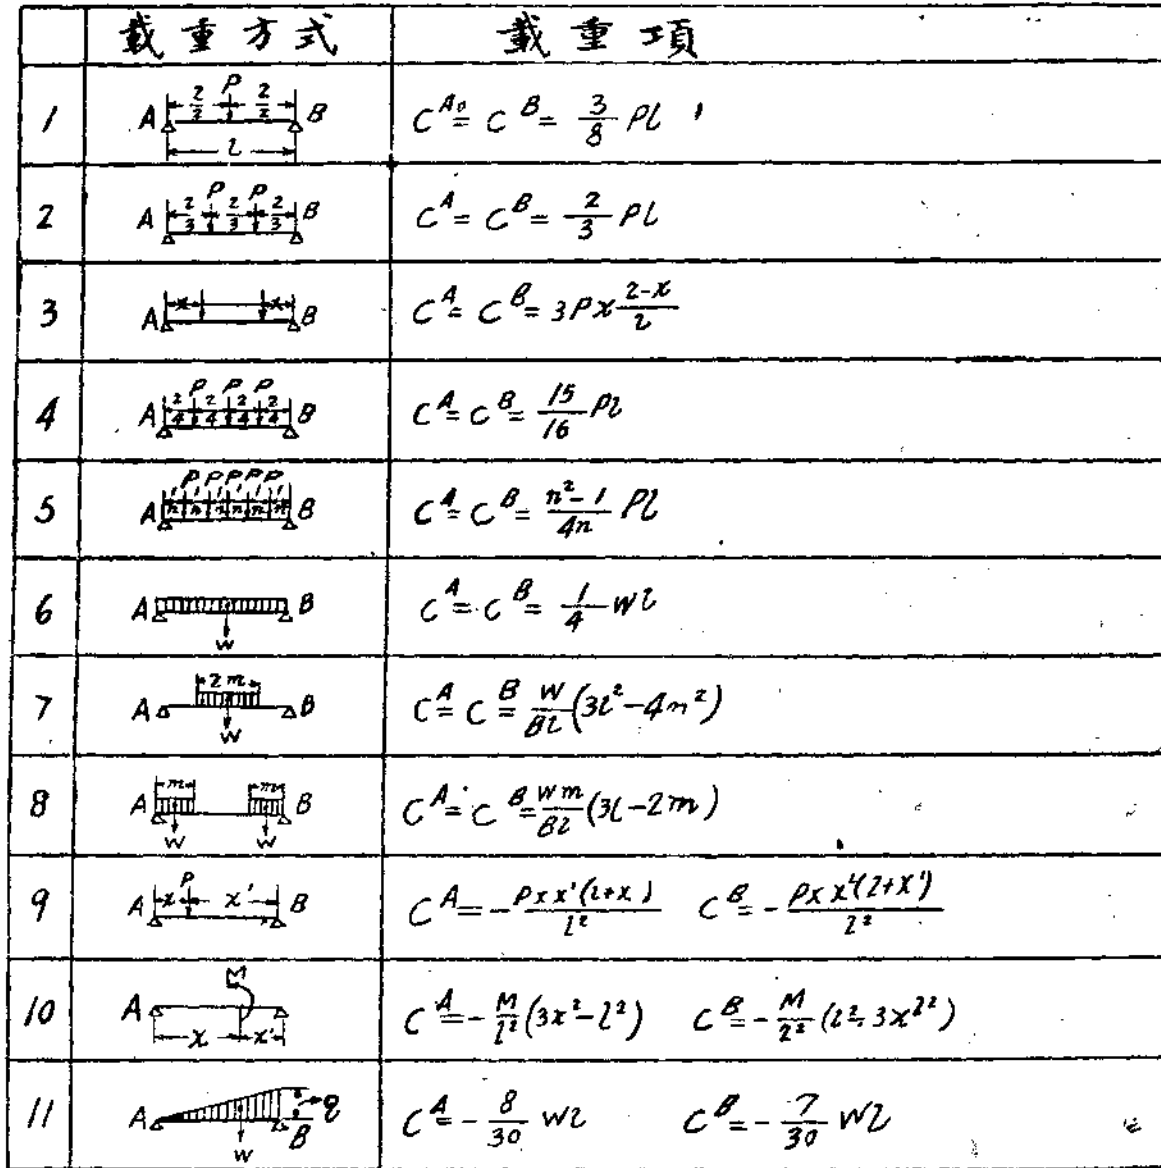 載重方式 載重項
1 A l/2 P l/2 B l C^A = C^B = 3/8 Pl
2 A l/3 P l/3 P l/3 B C^A = C^B = 2/3 Pl
3 A x x B C^A = C^B = 3Px (l-x)/l
4 A l/4 P l/4 P l/4 P l/4 B C^A = C^B = 15/16 Pl
5 A P P P P P 1/n 1/n 1/n 1/n 1/n 1/n B C^A = C^B = (n²-1)/4n Pl
6 A B W C^A = C^B = 1/4 Wl
7 A 2m B W C^A = C^B = W/8l (3l²-4m²)
8 A m m B W W C^A = C^B = Wm/8l (3l-2m)
9 A x P x' B C^A = -Pxx'(l+x)/l² C^B = -Pxx'(l+x')/l²
10 A M x x' C^A = -M/l² (3x²-l²) C^B = -M/l² (l²-3x'l²)
11 A q B W C^A = -8/30 Wl C^B = -7/30 Wl